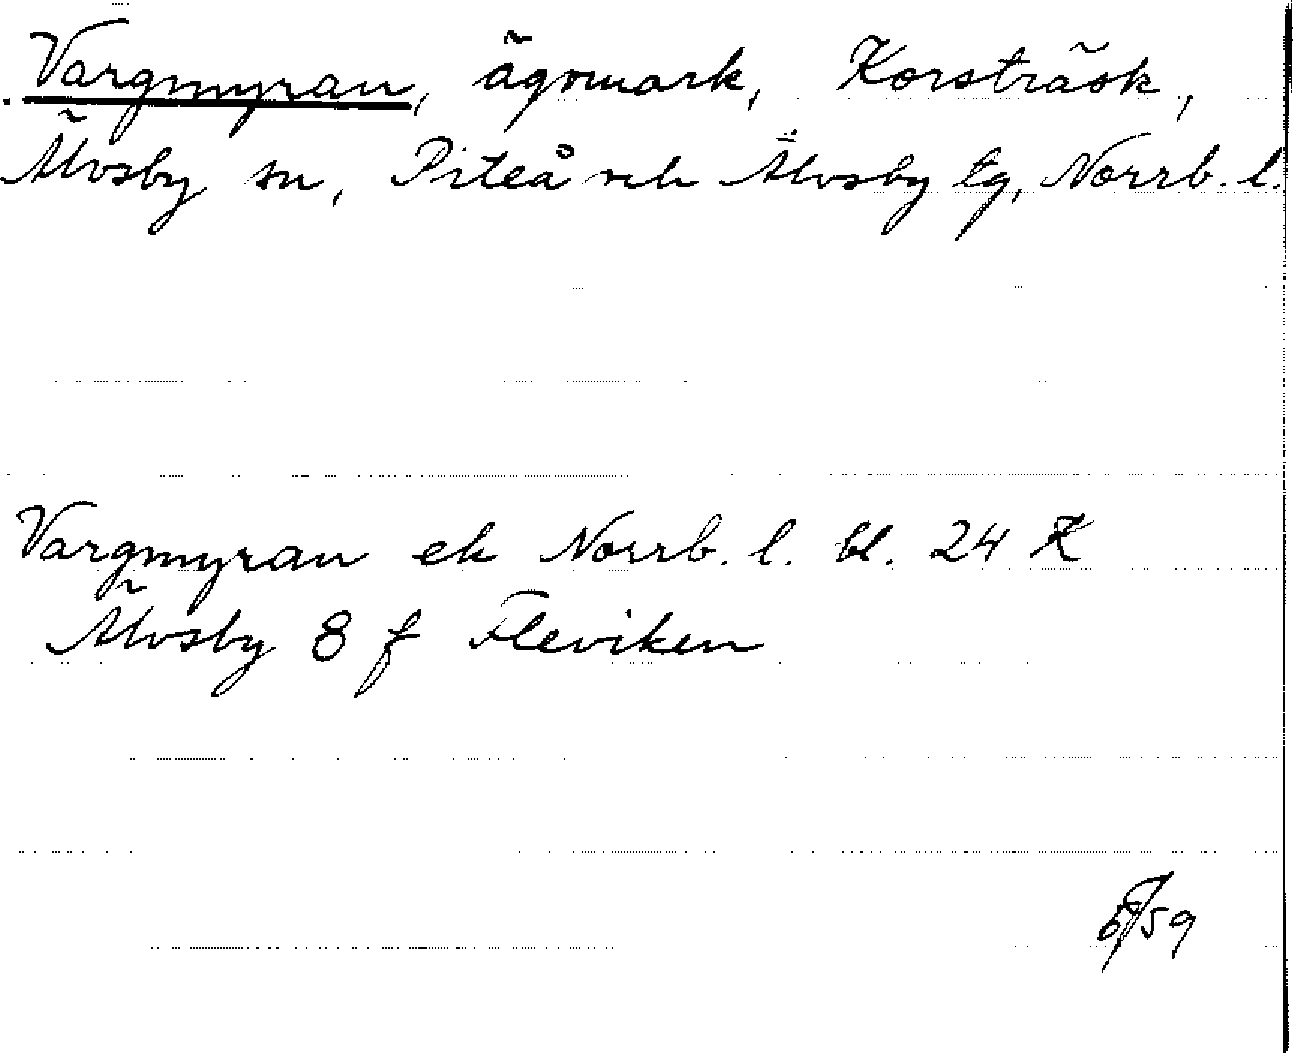 Vargmyran, ägomark, Korsträsk,
Älvsby sn, Piteå och Älvsby tg, Norrb. l.
Vargmyran ek Norrb. l. bl. 24 K
Älvsby 8 f Fleviken